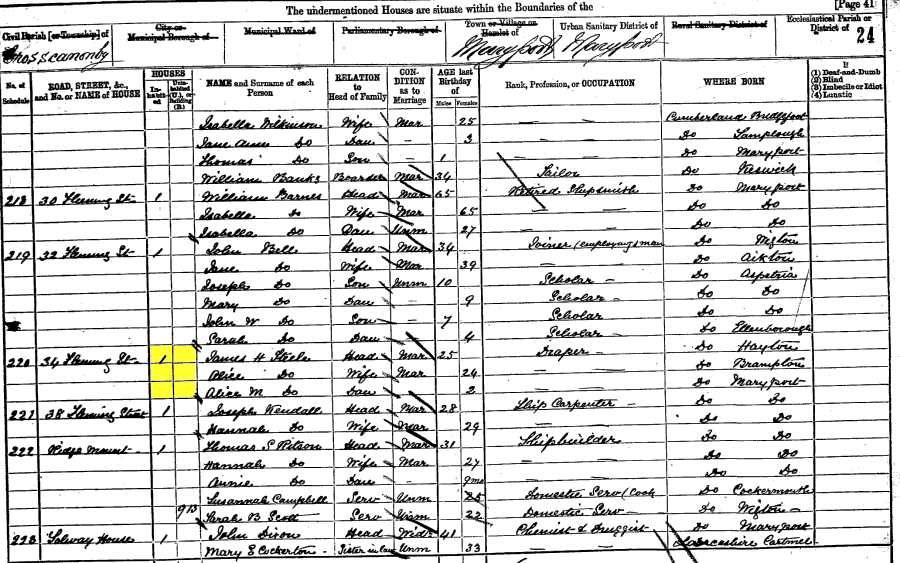 The undermentioned Houses are situate within the Boundaries of the [Page 41
Civil Parish [or Township] of City or Municipal Borough of Municipal Ward of Parliamentary Borough of Town or Village or Hamlet of Urban Sanitary District of Rural Sanitary District of Ecclesiastical Parish or District of
Crosscanonby Maryport Maryport 24
No. of Schedule ROAD, STREET, &c., and No. or NAME of HOUSE HOUSES Inhabited Uninhabited (U.), or Building (B.) NAME and Surname of each Person RELATION to Head of Family CONDITION as to Marriage AGE last Birthday of Males Females Rank, Profession, or OCCUPATION WHERE BORN If (1) Deaf-and-Dumb (2) Blind (3) Imbecile or Idiot (4) Lunatic
Isabella Wilkinson Wife Mar 25 Cumberland
Jane Ann Do Dau — 3 Do Lamplough
Thomas Do Son — 1 Do Maryport
William Banks Boarder Mar 34 Sailor Do Keswick
218 30 Fleming St 1 William Barnes Head Mar 65 Retired Shipsmith Do Maryport
Isabella Do Wife Mar 65 Do Do
Isabella Do Dau Unm 27 Do Do
219 32 Fleming St 1 John Bell Head Mar 34 Joiner (employing 1 man Do Wigton
Jane Do Wife Mar 39 Do Aikton
Joseph Do Son Unm 10 Scholar Do Aspatria
Mary Do Dau 9 Scholar Do Do
John W Do Son 7 Scholar Do Do
Sarah Do Dau 4 Scholar Do Ellenborough
220 34 Fleming St 1 James H Steele Head Mar 25 Draper Do Hayton
Alice Do Wife Mar 24 Do Brampton
Alice M Do Dau 2 Do Maryport
221 38 Fleming Street 1 Joseph Kendall Head Mar 28 Ship Carpenter Do Do
Hannah Do Wife Mar 29 Do Do
222 Ridge Mount 1 Thomas S Ritson Head Mar 31 Shipbuilder Do Do
Hannah Do Wife Mar 27 Do Do
Annie Do Dau 9mo Do Do
Susannah Campbell Serv Unm 25 Domestic Serv (Cook Do Cockermouth
Sarah B Scott Serv Unm 22 Domestic Serv Do Wigton
223 Solway House 1 John Dixon Head Wid 41 Chemist & Druggist Do Maryport
Mary E Cockerton Sister in law Unm 33 Lancashire Cartmel